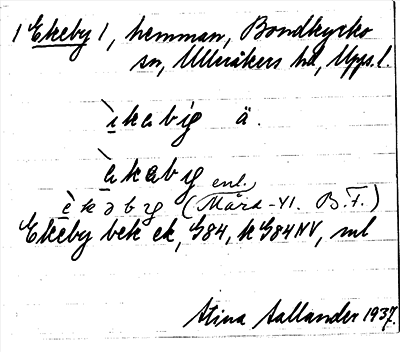 1 Ekeby 1, hemman, Bondkyrko
sn, Ulleråkers hd, Upps. l.
ı̀kabıg ä.
èkabyg
èkəbyg (enl. Mård -41. B.F.)
Ekeby bek ek, G84, k G84NV, ml
Stina Sallander 1937.